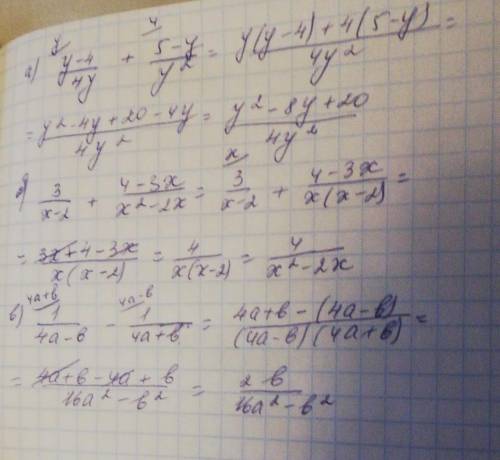 а) y \ (y-4)/4y + 4 \ (5-y)/y² = (y(y-4)+4(5-y))/4y² =
= (y²-4y+20-4y)/4y² = (y²-8y+20)/4y²
б) 3/(x-2) + (4-3x)/(x²-2x) = x \ 3/(x-2) + (4-3x)/(x(x-2)) =
= (3x+4-3x)/(x(x-2)) = 4/(x(x-2)) = 4/(x²-2x)
в) 4a+b \ 1/(4a-b) - 4a-b \ 1/(4a+b) = (4a+b-(4a-b))/((4a-b)(4a+b)) =
= (4a+b-4a+b)/(16a²-b²) = 2b/(16a²-b²)